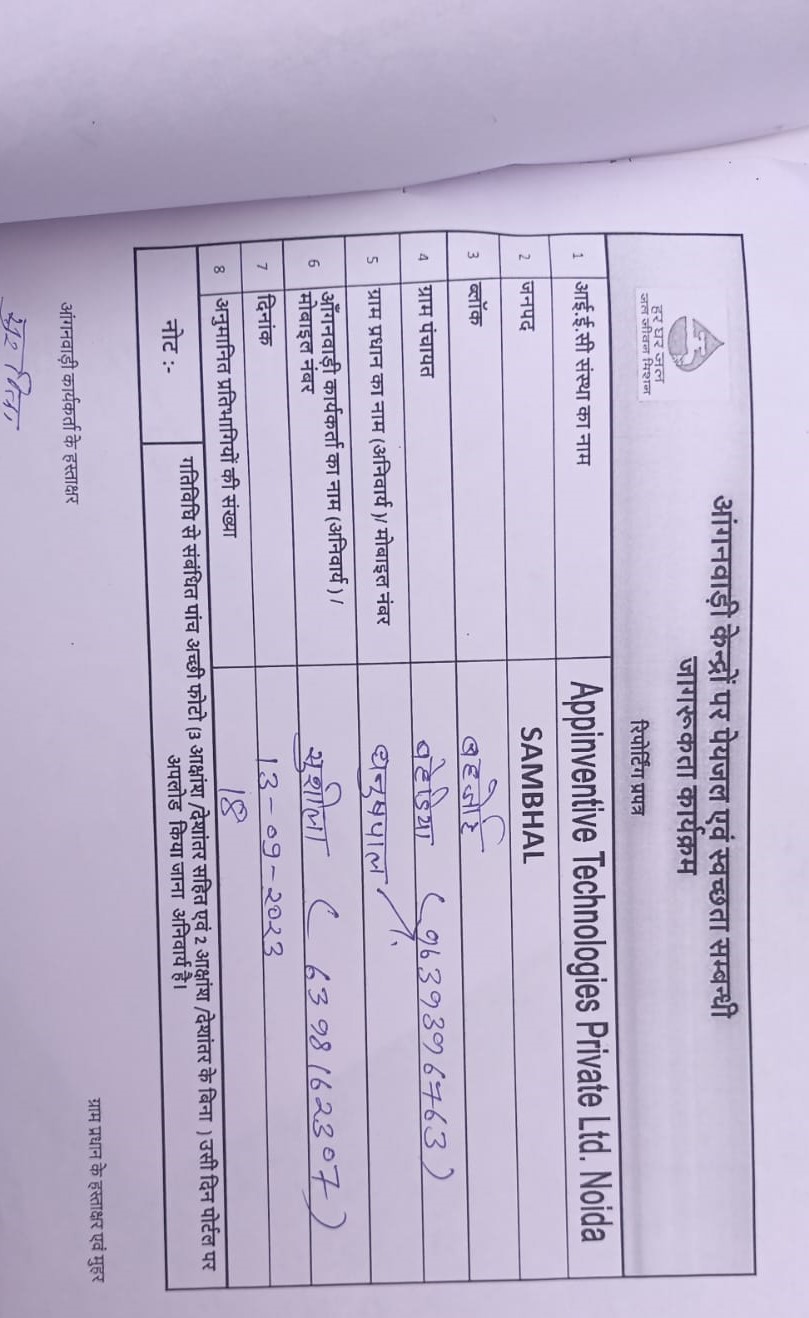 हर घर जल
जल जीवन मिशन
आंगनवाड़ी केन्द्रों पर पेयजल एवं स्वच्छता सम्बन्धी
जागरूकता कार्यक्रम
रिपोर्टिंग प्रपत्र
1 आई.ई.सी संस्था का नाम Appinventive Technologies Private Ltd. Noida
2 जनपद SAMBHAL
3 ब्लॉक बहजोई
4 ग्राम पंचायत
5 ग्राम प्रधान का नाम (अनिवार्य )/ मोबाइल नंबर धनुषपाल (9639396763)
6 आँगनवाड़ी कार्यकर्ता का नाम (अनिवार्य ) /
मोबाइल नंबर सुशीला ( 6398162307 )
7 दिनांक 13-09-2023
8 अनुमानित प्रतिभागियों की संख्या 18
नोट :- गतिविधि से संबंधित पांच अच्छी फोटो (3 आक्षांश /देशांतर सहित एवं 2 आक्षांश /देशांतर के बिना ) उसी दिन पोर्टल पर
अपलोड किया जाना अनिवार्य है।
आंगनवाड़ी कार्यकर्ता के हस्ताक्षर
ग्राम प्रधान के हस्ताक्षर एवं मुहर